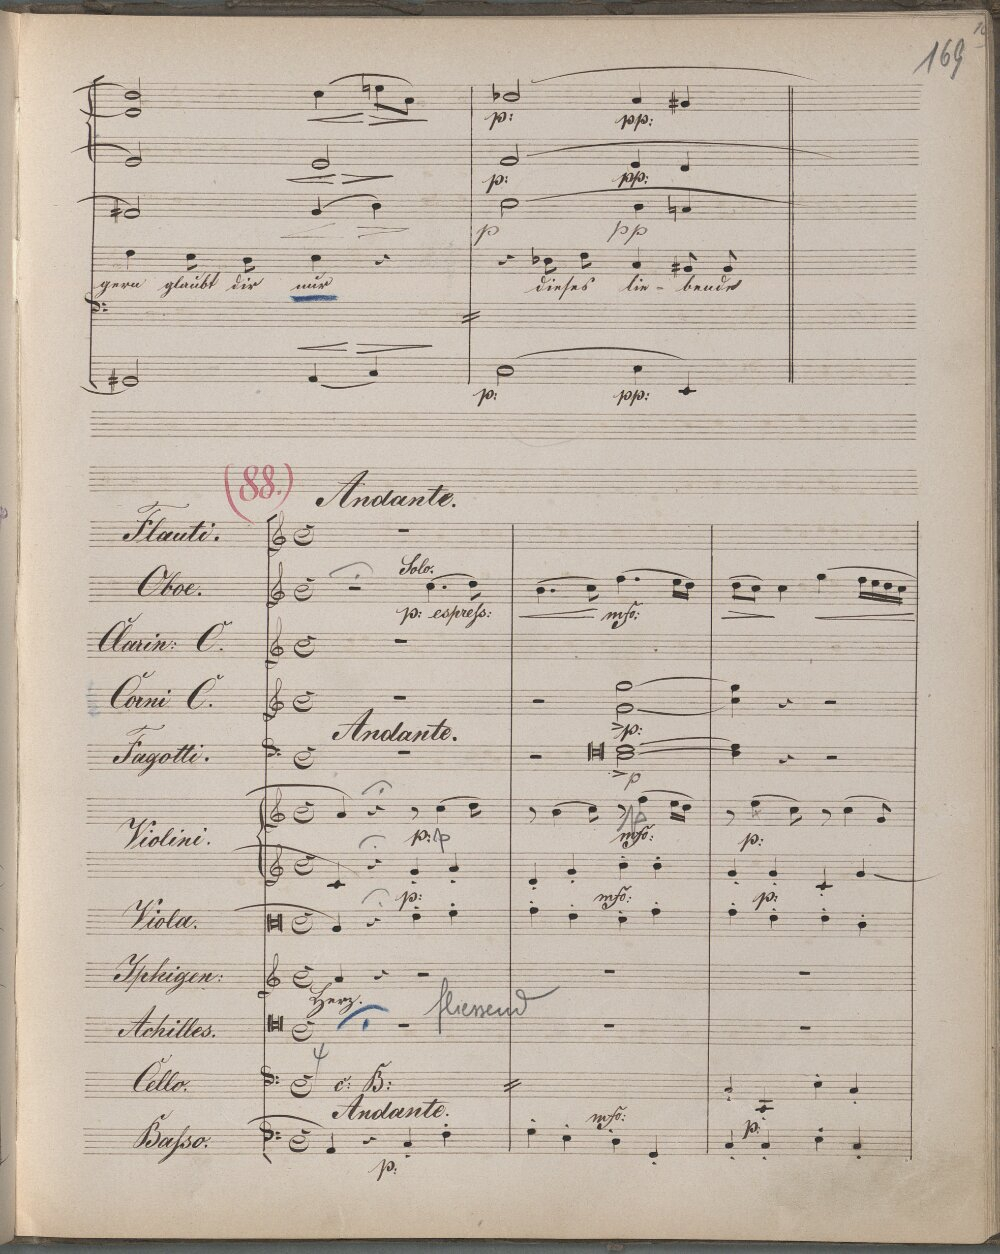 169
p: pp:
p: pp:
p pp
gern glaubt dir nur dieses lie - bende
p: pp:
(88.) Andante.
Flauti.
Oboe. Solo.
p: espress: mfo:
Clarin: C.
Corni C.
p:
Andante.
Fagotti.
p
Violini.
p: p mfo: p:
p: mfo: p:
Viola.
Iphigen:
Herz. fliessend
Achilles.
Cello. c: B:
Andante. mfo: p:
Basso.
p: